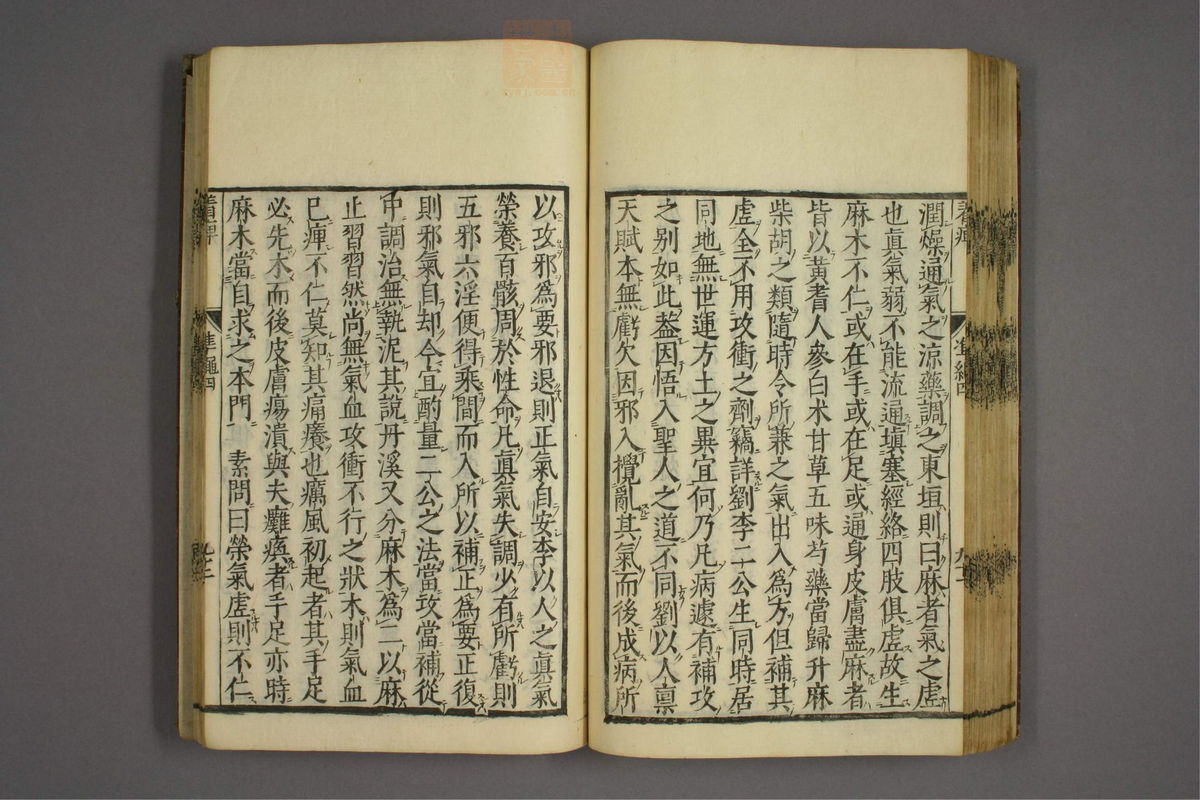 潤燥通氣之涼藥調之東垣則曰麻者氣之虛
也眞氣弱不能流通塡塞經絡四肢俱虛故生
麻木不仁或在手或在足或通身皮膚盡麻者
皆以黃耆人參白术甘草五味芍藥當歸升麻
柴胡之類隨時令所兼之氣出入爲方但補其
虛全不用攻衝之劑竊詳劉李二公生同時居
同地無世運方土之異宜何乃凡病遽有補攻
之別如此葢因悟入聖人之道不同劉以人禀
天賦本無虧欠因邪入攪亂其氣而後成病所
以攻邪爲要邪退則正氣自安李以人之眞氣
榮養百骸周於性命凡眞氣失調少有所虧則
五邪六淫便得乘間而入所以補正爲要正復
則邪氣自却今宜酌量二公之法當攻當補從
中調治無執泥其說丹溪又分麻木爲二以麻
止習習然尚無氣血攻衝不行之狀木則氣血
已痺不仁莫知其痛癢也癘風初起者其手足
必先木而後皮膚瘍潰與夫癱瘓者手足亦時
麻木當自求之本門 素問曰榮氣虛則不仁